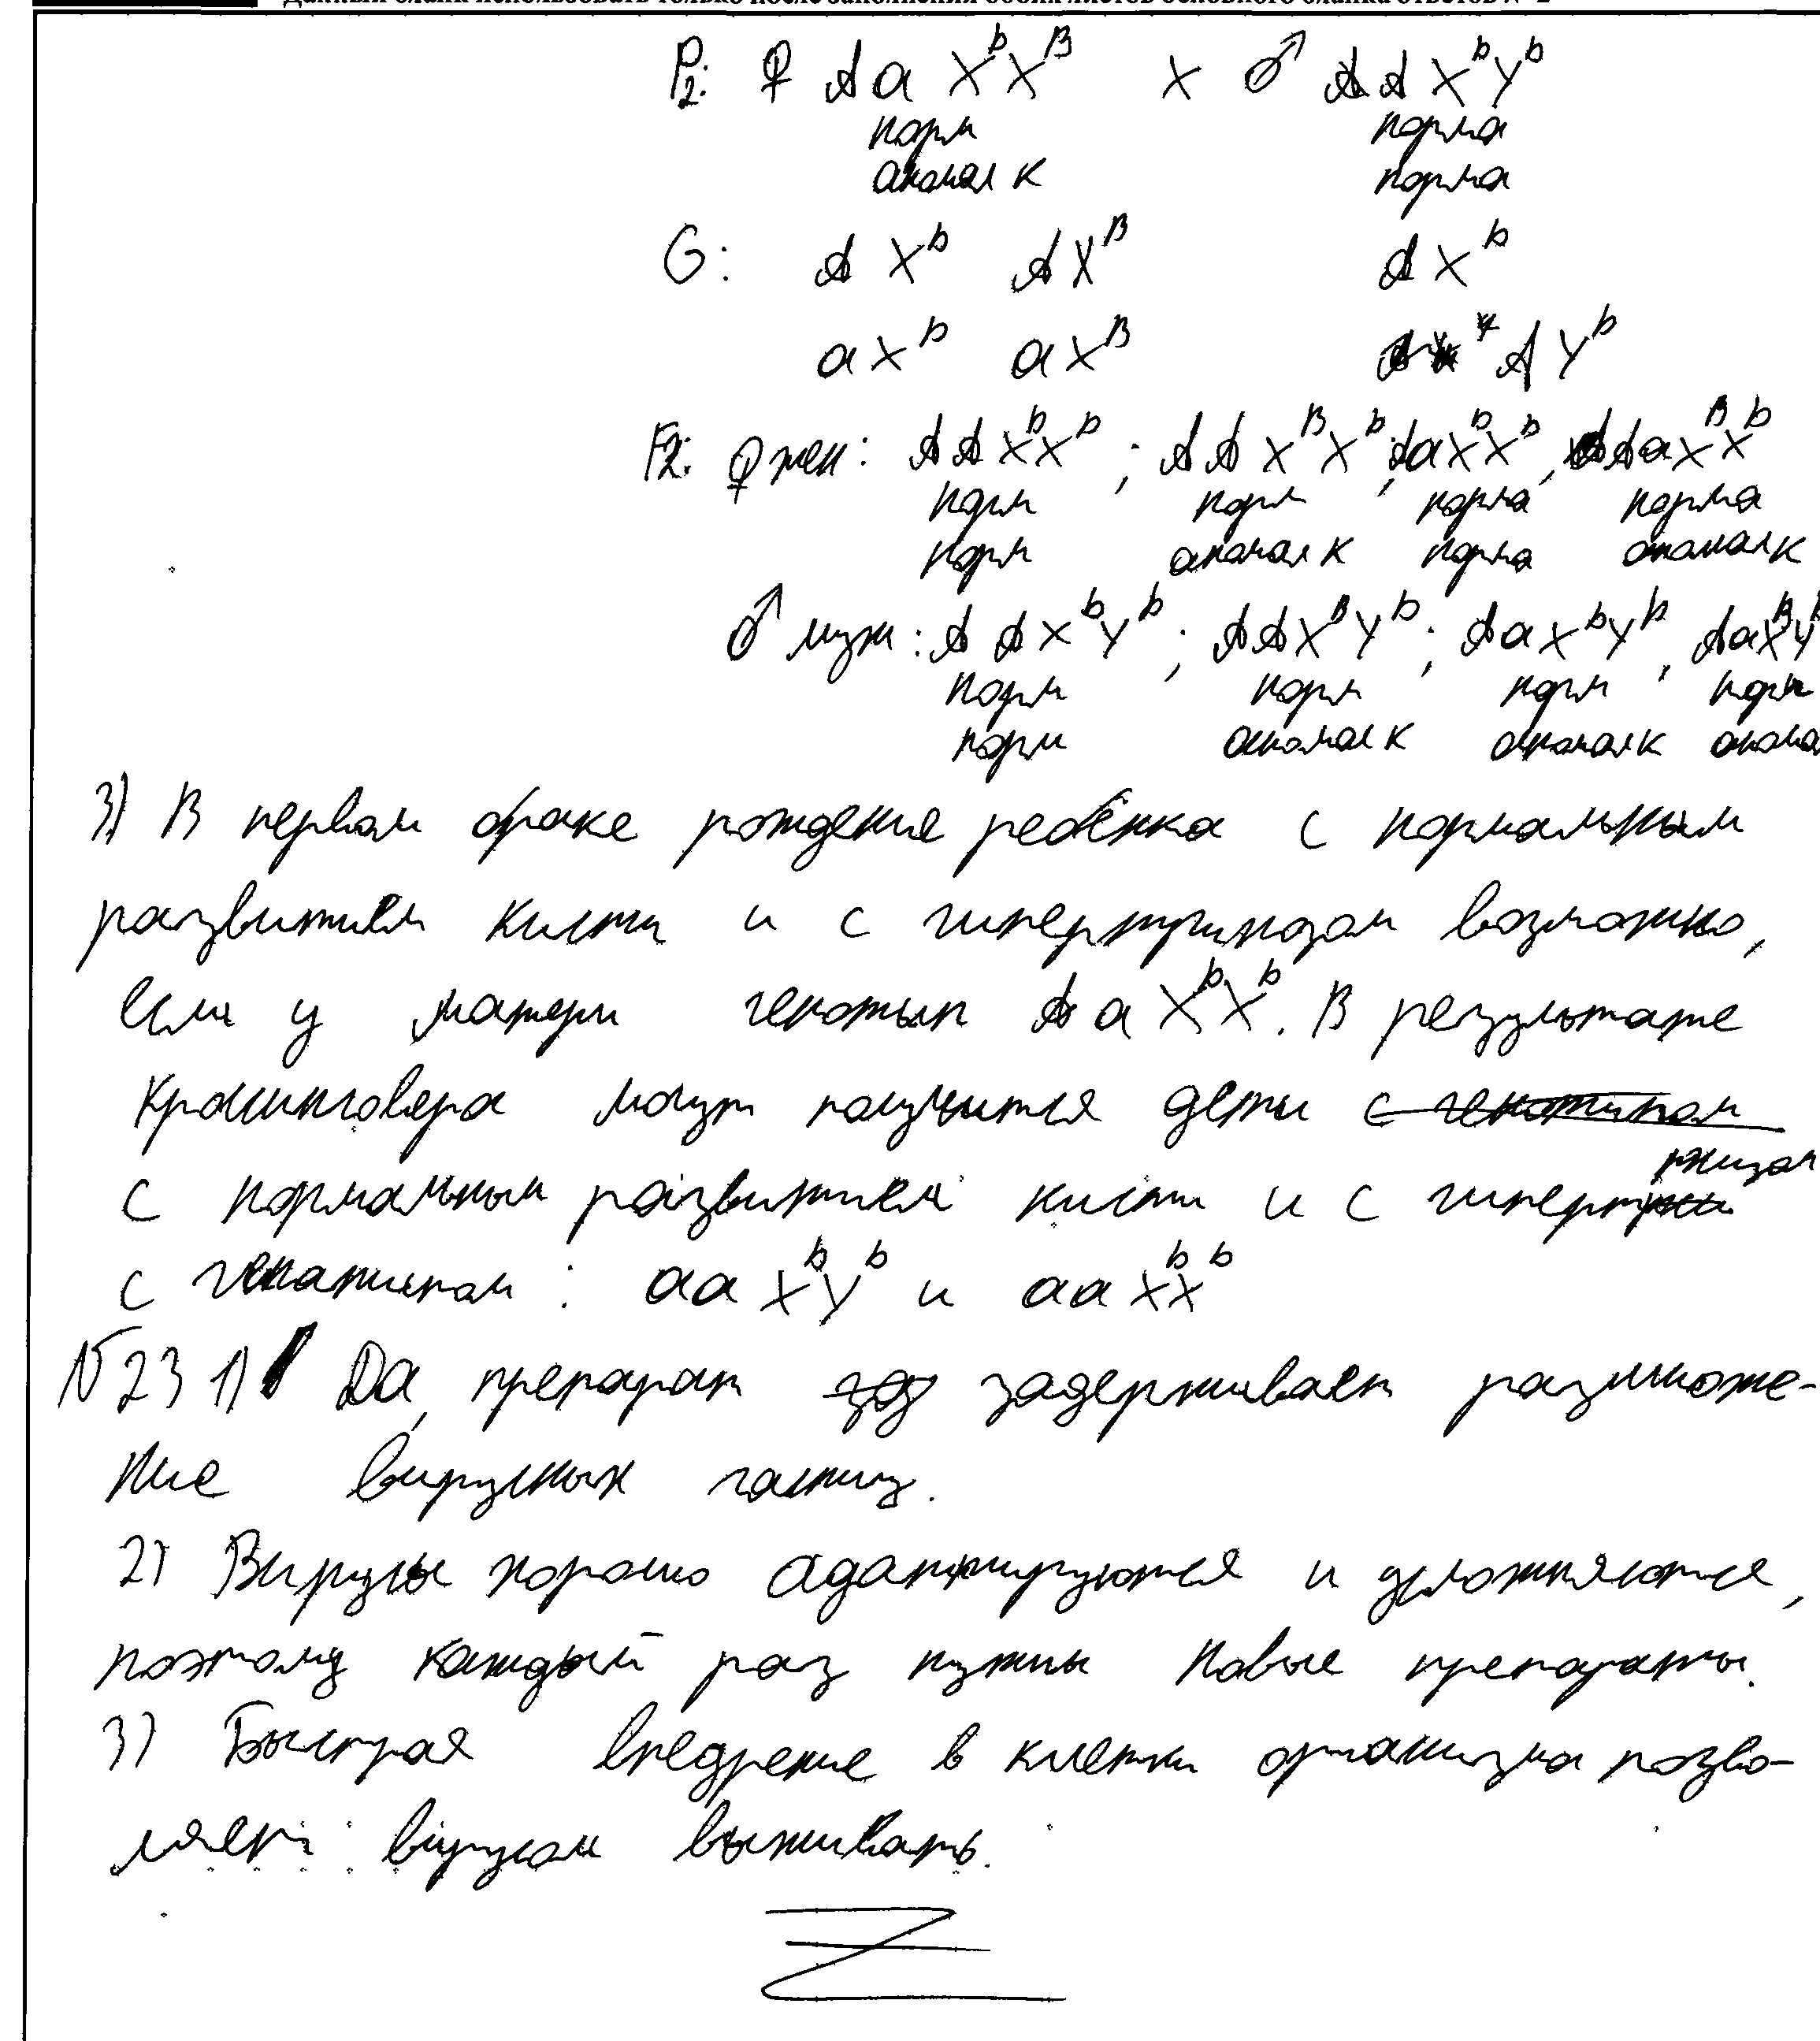 Данный бланк использовать только после заполнения обоих листов основного бланка ответов № 2
P2: ♀ Aa XᵇXᴮ x ♂ AA XᵇYᵇ
норм норма
аномал к норма
G: A Xᵇ A Xᴮ A Xᵇ
a Xᵇ a Xᴮ A Yᵇ
F2: ♀ жен: AA XᵇXᵇ ; AA XᴮXᵇ ; Aa XᵇXᵇ , Aa XᴮXᵇ
норм норм норма норма
норм аномал к норма аномал к
♂ муж: AA XᵇYᵇ ; AA XᴮYᵇ ; Aa XᵇYᵇ , Aa XᴮY
норм норм норм норм
норм аномал к аномал к анома
3) В первом браке рождение ребёнка с нормальным
развитием кисти и с гипертрихозом возможно,
если у матери генотип Aa XᵇXᵇ. В результате
кроссинговера могут получится дети с генотипом
с нормальным развитием кисти и с гипер
с генотипом : aa XᵇYᵇ и aa XᵇXᵇ
№23 1) Да, препарат задерживает размноже-
ние вирусных частиц.
2) Вирусы хорошо адаптируются и усложняются,
поэтому каждый раз нужны новые препараты.
3) Быстрая внедрение в клетки организма позво-
ляет вирусам выживать.
Z